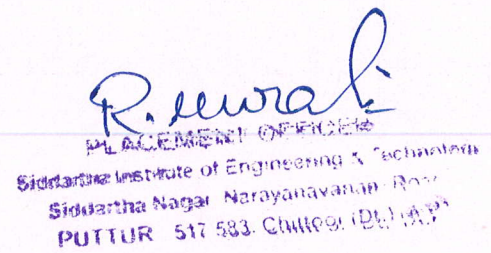 R. Murali
PLACEMENT OFFICER
Siddartha Institute of Engineering & Technology
Siddartha Nagar Narayanavanam Road
PUTTUR 517 583. Chittoor (Dt.) (A.P)